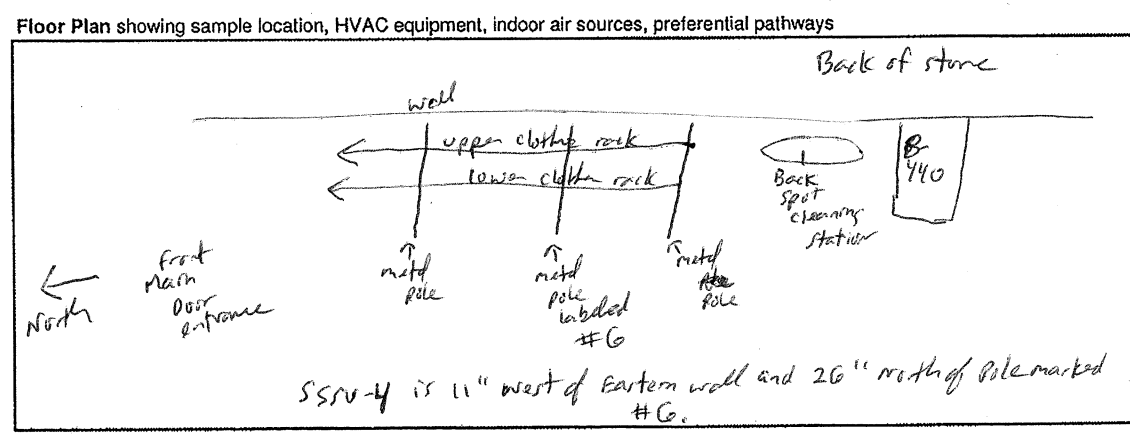 Floor Plan showing sample location, HVAC equipment, indoor air sources, preferential pathways
Back of store
wall
upper clothes rack
lower clothes rack
B-
440
Back
spot
cleaning
station
North
Front
Main
Door
entrance
metal
pole
metal
pole
labeled
#6
metal
pole
SSSV-4 is 11" west of Eastern wall and 26" north of Pole marked
#6.